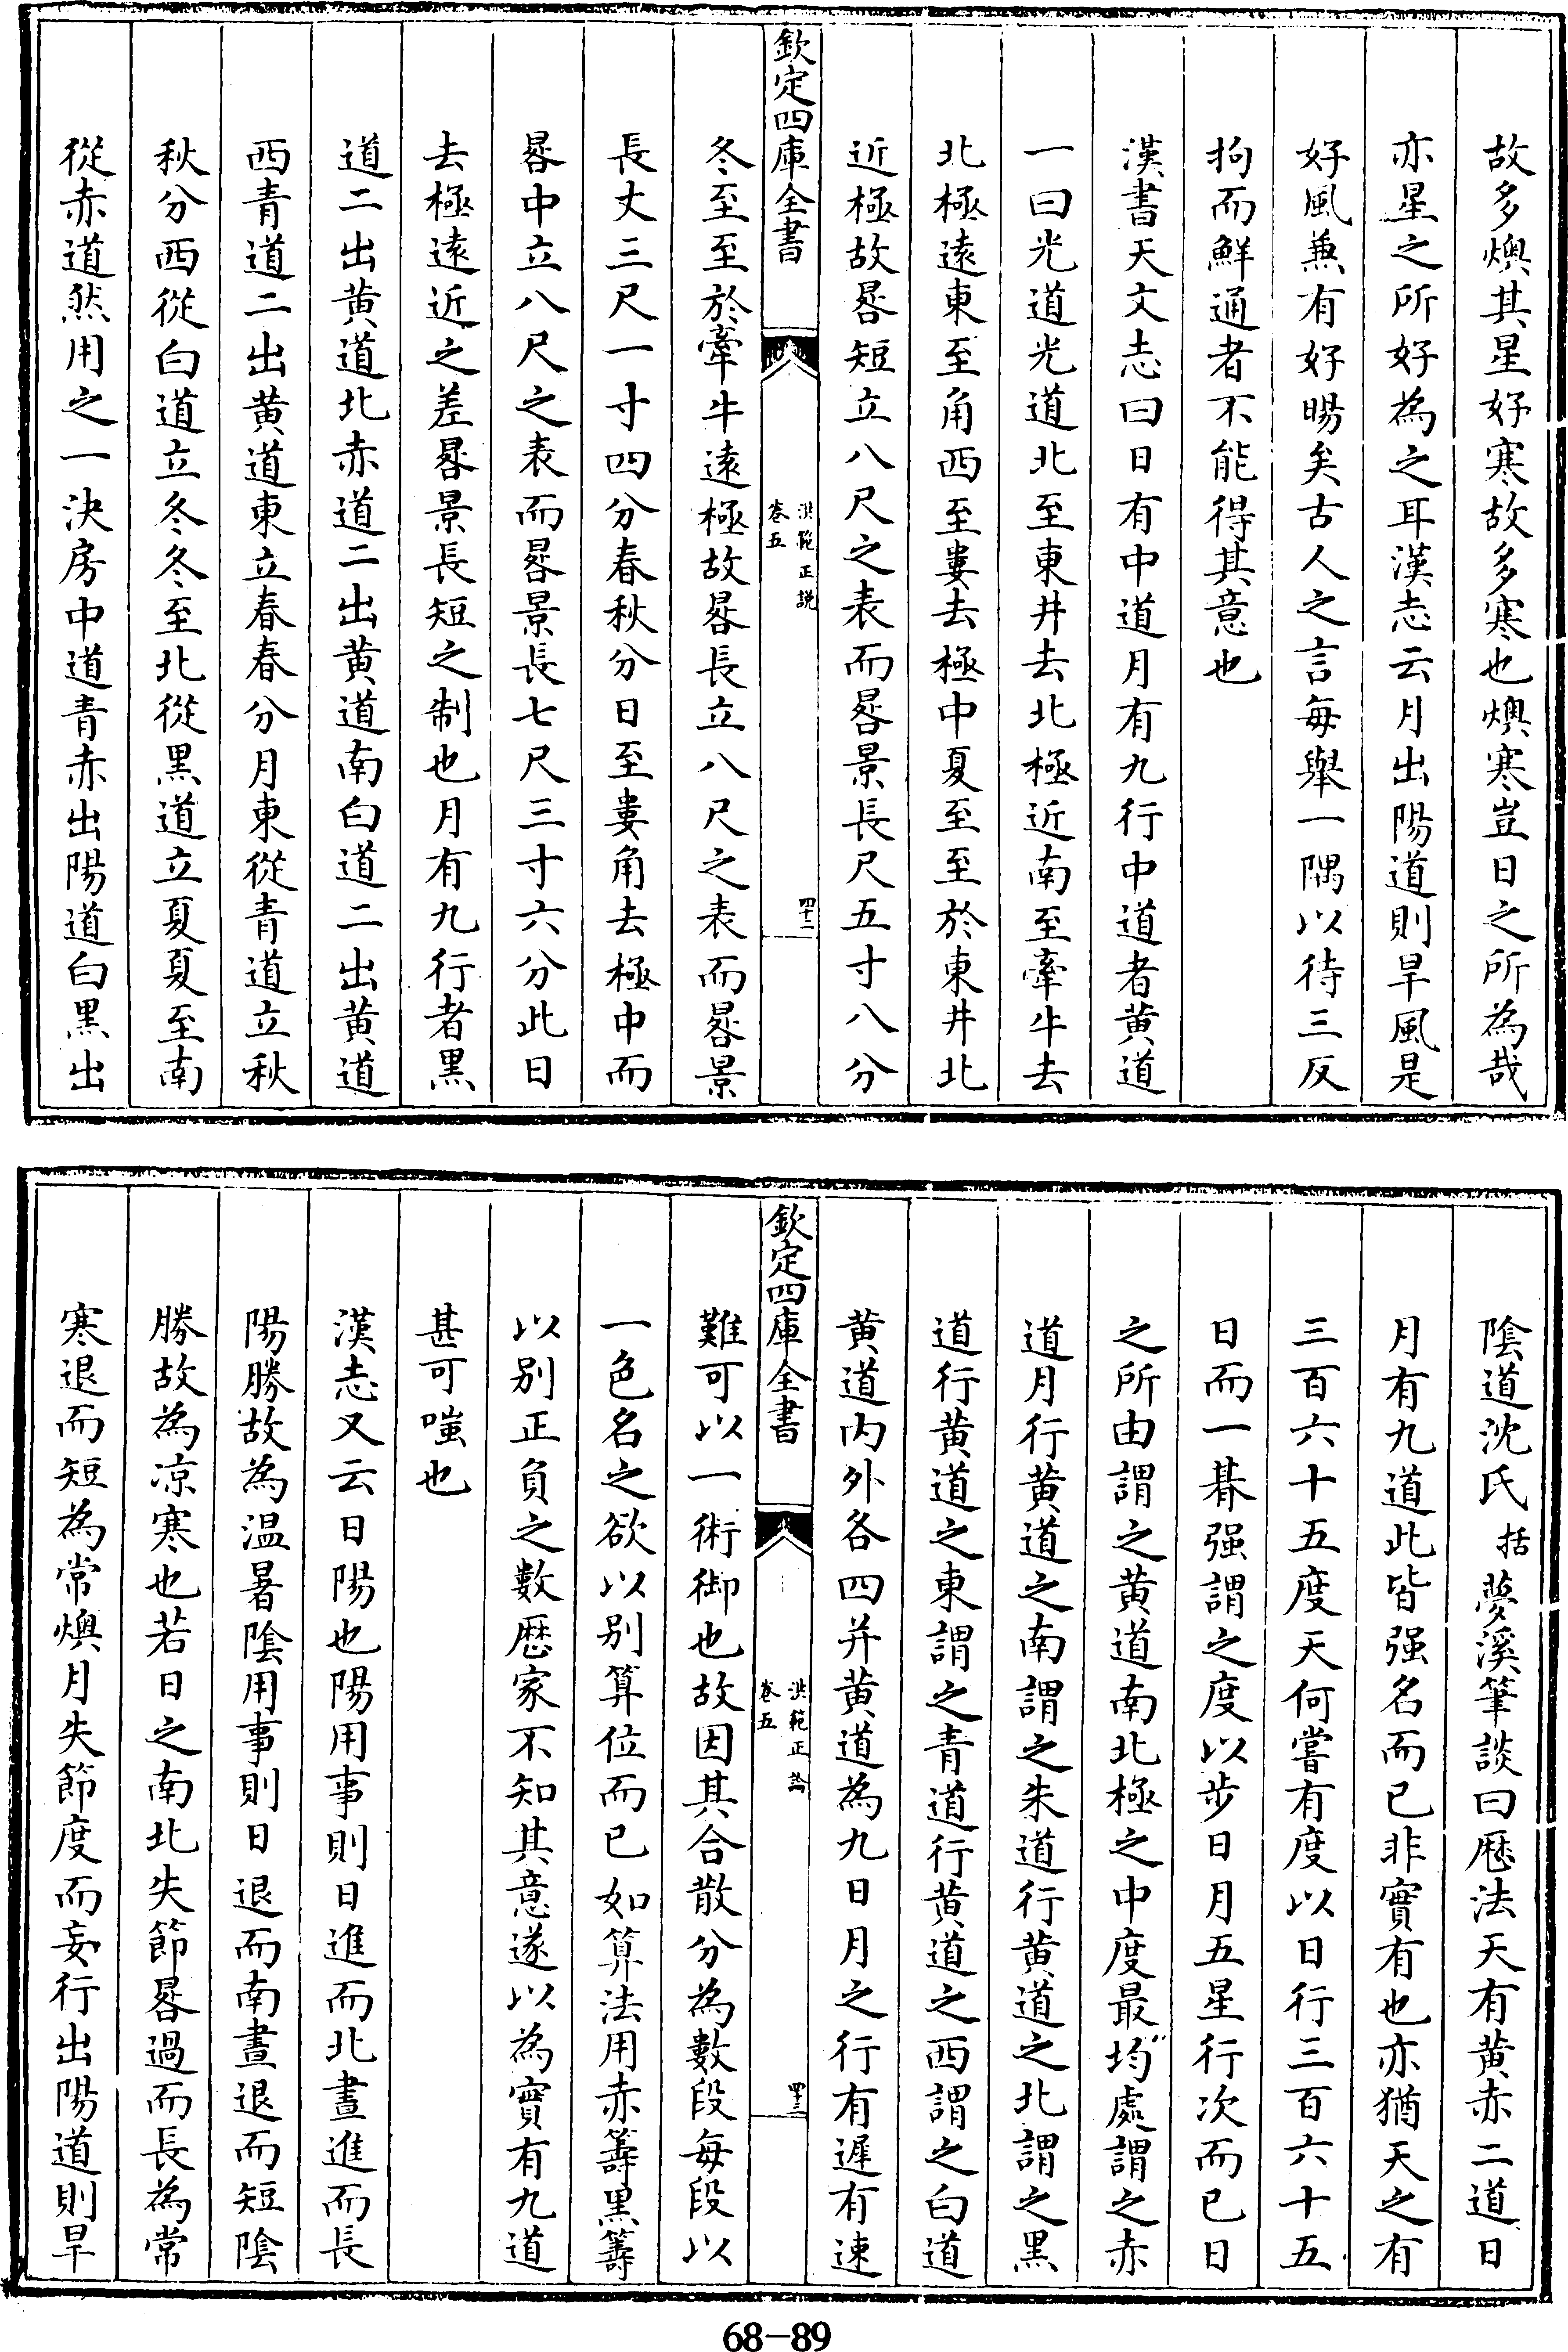 故多燠其星好寒故多寒也燠寒豈日之所為哉
亦星之所好為之耳漢志云月出陽道則旱風是
好風兼有好暘矣古人之言每舉一隅以待三反
拘而鮮通者不能得其意也
漢書天文志曰日有中道月有九行中道者黄道
一曰光道光道北至東井去北極近南至牽牛去
北極遠東至角西至婁去極中夏至至於東井北
近極故晷短立八尺之表而晷景長尺五寸八分
欽定四庫全書
洪範正説
卷五
四十二
冬至至於牽牛遠極故晷長立八尺之表而晷景
長丈三尺一寸四分春秋分日至婁角去極中而
晷中立八尺之表而晷景長七尺三寸六分此日
去極遠近之差晷景長短之制也月有九行者黒
道二出黄道北赤道二出黄道南白道二出黄道
西青道二出黄道東立春春分月東從青道立秋
秋分西從白道立冬冬至北從黒道立夏夏至南
從赤道然用之一決房中道青赤出陽道白黒出
陰道沈氏括夢溪筆談曰厯法天有黄赤二道日
月有九道此皆强名而已非實有也亦猶天之有
三百六十五度天何嘗有度以日行三百六十五
日而一朞强謂之度以步日月五星行次而已日
之所由謂之黄道南北極之中度最均處謂之赤
道月行黄道之南謂之朱道行黄道之北謂之黒
道行黄道之東謂之青道行黄道之西謂之白道
黄道内外各四并黄道為九日月之行有遲有速
欽定四庫全書
洪範正論
卷五
四十三
難可以一術御也故因其合散分為數段每段以
一色名之欲以别算位而已如算法用赤籌黒籌
以别正負之數厯家不知其意遂以為實有九道
甚可嗤也
漢志又云日陽也陽用事則日進而北晝進而長
陽勝故為温暑陰用事則日退而南晝退而短陰
勝故為凉寒也若日之南北失節晷過而長為常
寒退而短為常燠月失節度而妄行出陽道則旱
68-89